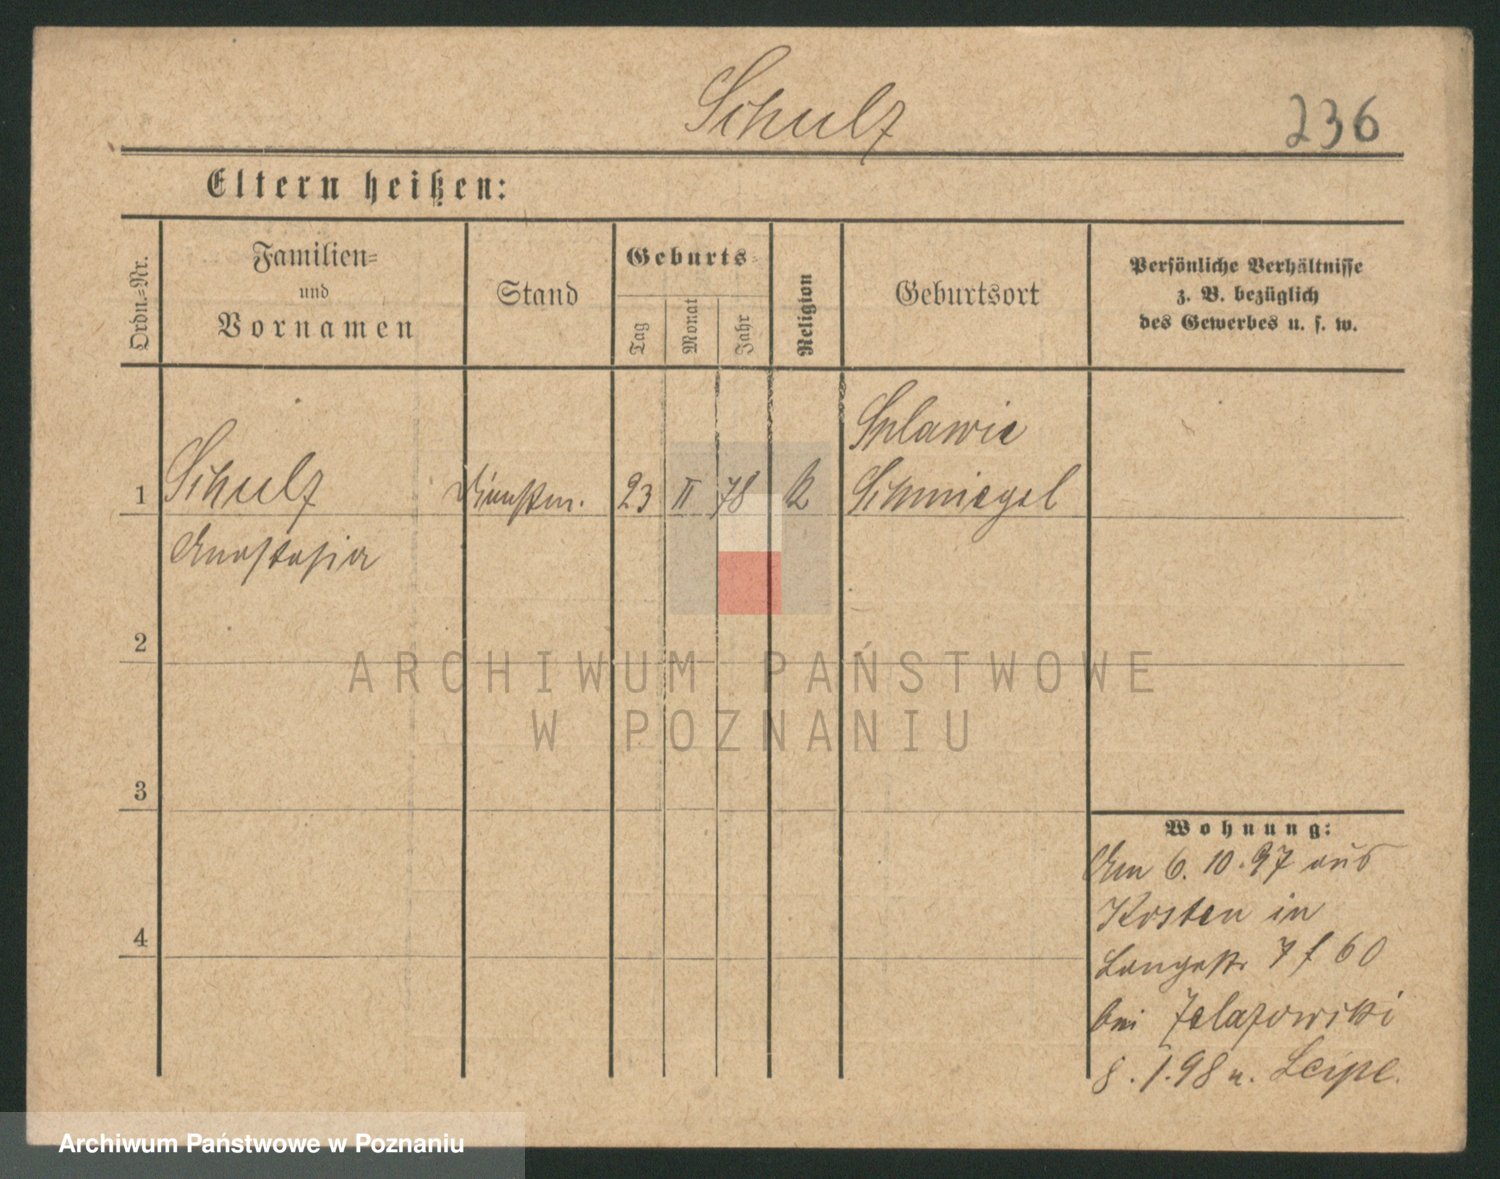 Schulz
236
Eltern heißen:
Ordn.-Nr.
Familien-
und
Vornamen
Stand
Geburts-
Tag
Monat
Jahr
Religion
Geburtsort
Persönliche Verhältnisse
z. B. bezüglich
des Gewerbes u. s. w.
1
Schulz
Anastasia
Dienstm.
23
II
78
K
Splawie
Schmiegel
2
3
4
Wohnung:
Am 6.10.97 aus
Kosten in
Langestr 7 f 60
bei Zelazowski
8.1.98 n. Leipe.
ARCHIWUM PAŃSTWOWE
W POZNANIU
Archiwum Państwowe w Poznaniu